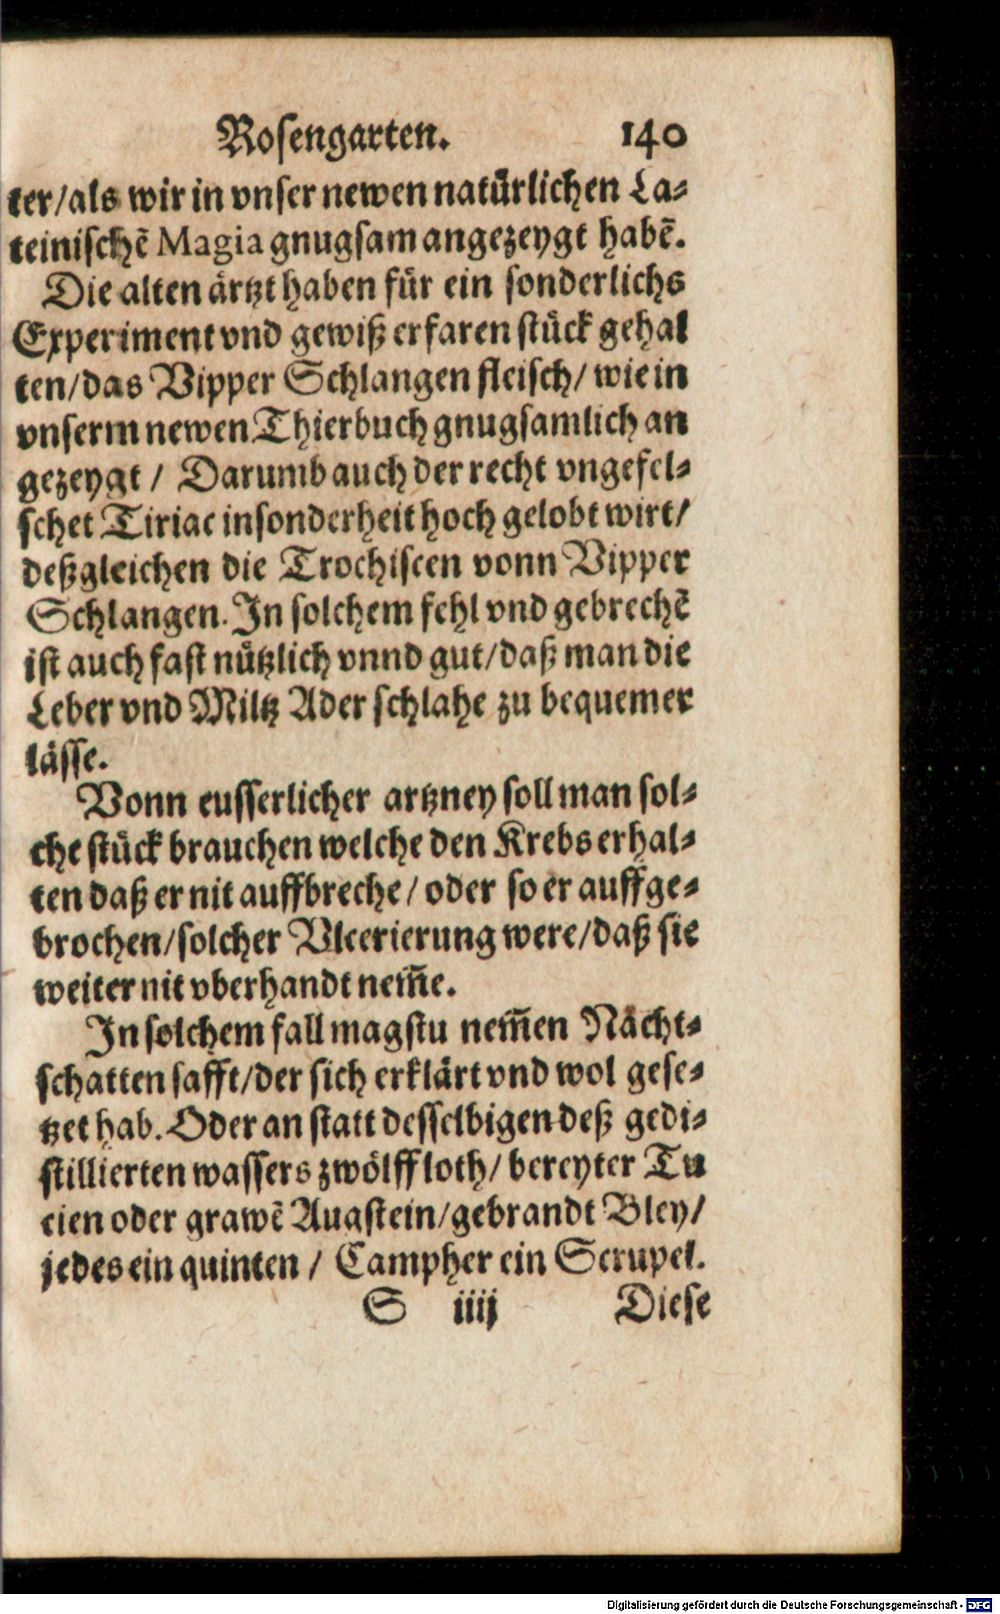 Rosengarten. 140
ter/als wir in vnser newen natürlichen La-
teinischē Magia gnugsam angezeygt habē.
Die alten ärtzt haben für ein sonderlichs
Experiment vnd gewiß erfaren stück gehal
ten/das Vipper Schlangen fleisch/ wie in
vnserm newen Thierbuch gnugsamlich an
gezeygt / Darumb auch der recht vngefel-
schet Tiriac insonderheit hoch gelobt wirt/
deßgleichen die Trochiscen vonn Vipper
Schlangen. In solchem fehl vnd gebrechē
ist auch fast nützlich vnnd gut/daß man die
Leber vnd Miltz Ader schlahe zu bequemer
lässe.
Vonn eusserlicher artzney soll man sol-
che stück brauchen welche den Krebs erhal-
ten daß er nit auffbreche/ oder so er auffge-
brochen/solcher Vlcerierung were/daß sie
weiter nit vberhandt nem̄e.
In solchem fall magstu nem̄en Nächt-
schatten safft/der sich erklärt vnd wol gese-
tzet hab. Oder an statt desselbigen deß gedi-
stillierten wassers zwölff loth/ bereyter Tu
cien oder grawē Augstein/gebrandt Bley/
jedes ein quinten / Campher ein Scrupel.
S iiij Diese
Digitalisierung gefördert durch die Deutsche Forschungsgemeinschaft - DFG